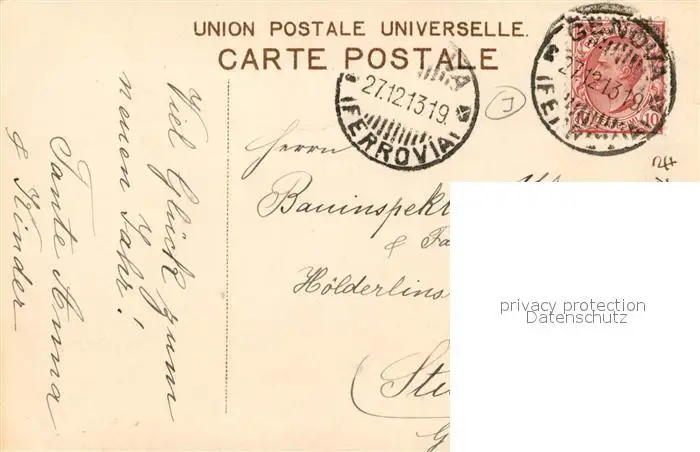 UNION POSTALE UNIVERSELLE.
CARTE POSTALE
GENOVA
27.12.13 19
(FERROVIA)
27.12.13 19.
(FERROVIA)
10
Viel Glück zum
neuen Jahr!
Tante Anna
& Kinder
Herrn
Bauinspekt
& Fa
Hölderlins
Stu
privacy protection
Datenschutz